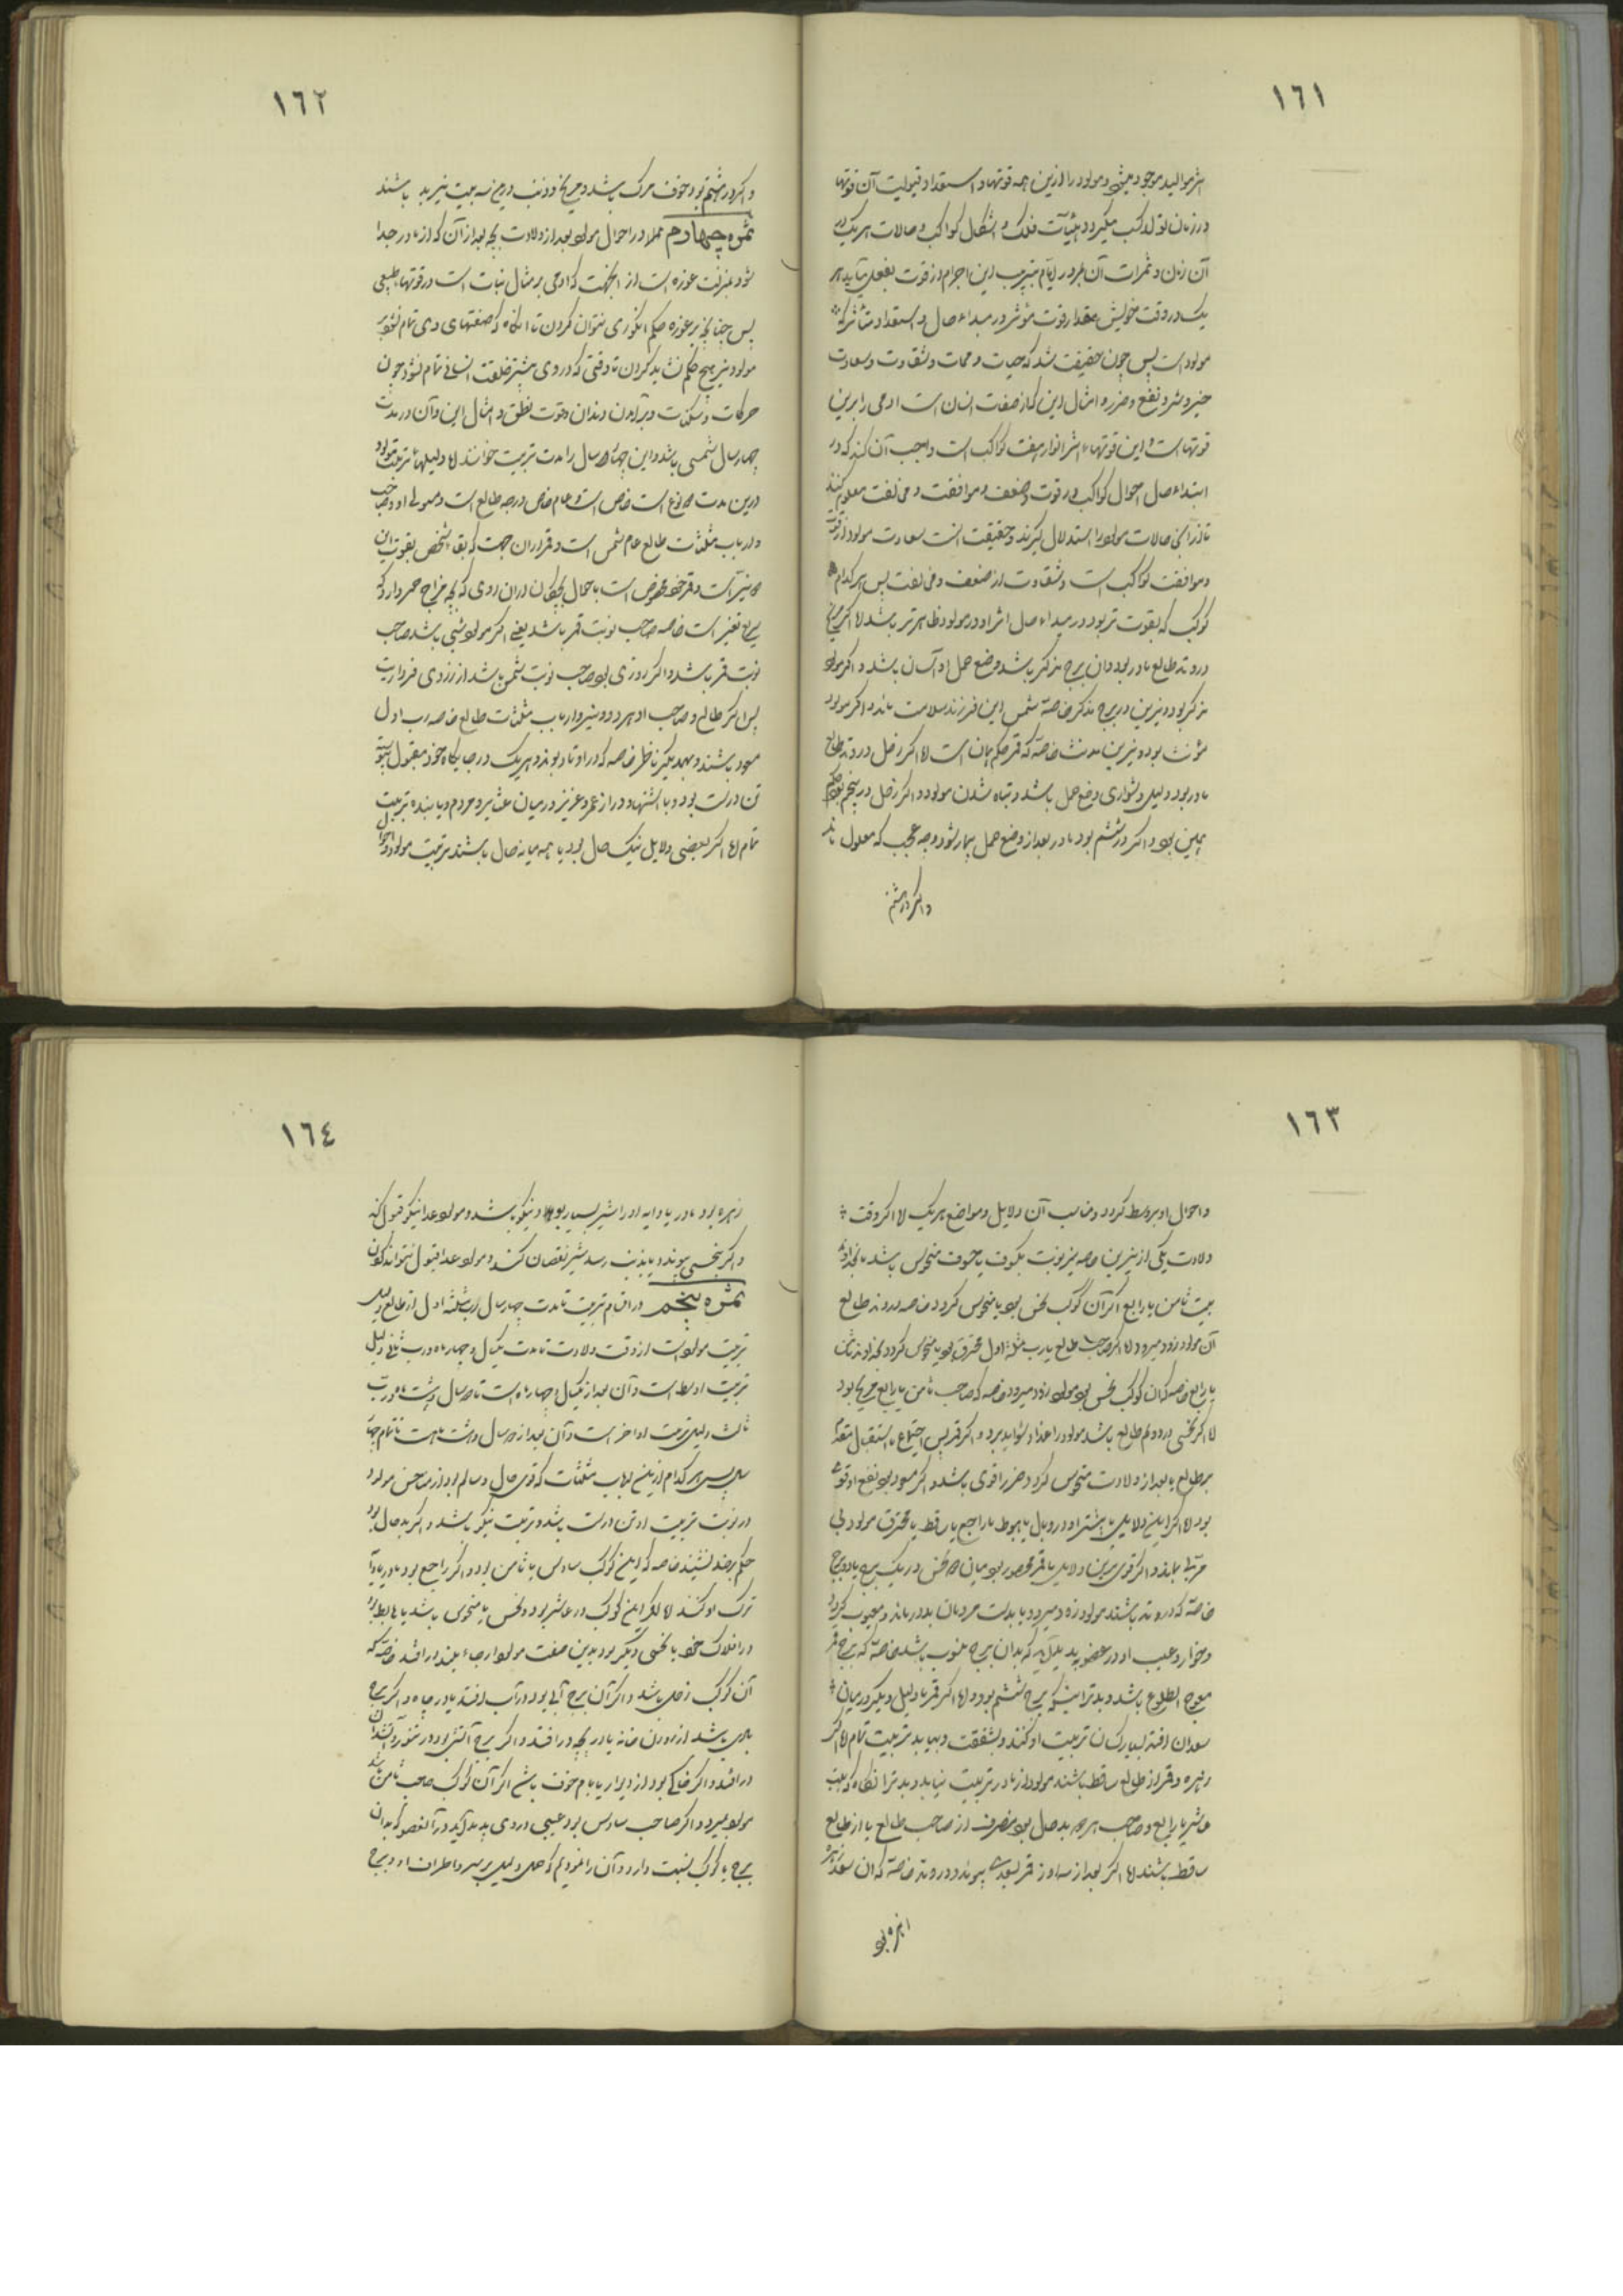 ١٦١
در زمان تولد کسب میکردد هیئات فلک و اشکال کواکب و حالات هر یک در
آن زمان و ثمرات آن بمرور ایام بترتیب این اجرام از قوت بفعل می آید هر
یک در وقت خویش بمقدار قوت مؤثر در مبداء حال و استعداد متأثر که
مولود است پس چون حقیقت شد که حیات و ممات و شقاوت و سعادت
خیر و شر و نفع و ضرر و امثال این که از صفت انسان است ادمی را برین
قوتهاست و این قوتها اثر انوار هفت کواکب است واجب آن کند که در
ابتداء حال احوال کواکب در قوت و ضعف و موافقت و مخالفت معلوم کنند
تا از آنجا حالات مولود را استدلال گیرند و حقیقت است سعادت مولود از قوت
و موافقت کواکب است و شقاوت از ضعف و مخالفت پس هر کدام
کوکب که بقوت تر بود در مبداء حال اثر او در مولود ظاهر تر باشد اما اگر مریخ
در وتد طالع مادر بود و آن برج مذکر باشد وضع حمل او آسان باشد و اگر مولود
مذکر بود و نیرین در برج مذکر خاصه شمس این فرزند سلامت ماند و اگر مولود
مؤنث بود و نیرین مؤنث خاصه که قمر حکم همان است اما اگر زحل در وتد طالع
مادر بود دلیل دشواری وضع حمل باشد و تباه شدن مولود و اگر زحل در پنجم بود حکم
همین بود و اگر در ششم بود مادر بعد از وضع حمل بیمار شود وجه عجب که معلول ماند
و اگر در هشتم
١٦٢
و اگر در هشتم بود خوف مرگ باشد و مریخ و ذنب درین سه بیت نیز بد باشند
ثمره چهارم عملا در احوال مولود بعد از ولادت بچه بعد از آن که از مادر جدا
شود بمنزلت غوره است از انجهت که ادمی بر مثال نبات است در قوتهاء طبیعی
پس چنانچه بر غوره حکم انگوری نتوان کردن تا انگاه که صفتهای وی تمام نشود بر
مولود نیز هیچ حکم نشاید کردن تا وقتی که در وی بیشتر خلقت انسانی تمام نشود چون
حرکات و سکنات و برآمدن دندان و قوت نطق و امثال این و آن در مدت
چهار سال شمسی باشد و این چهار سال را مدت تربیت خوانند اما دلیلهاء تربیت مولود
درین مدت دو نوع است خاص است و عام خاص درجه طالع است و مستولی او و صاحب
و ارباب مثلثات طالع عام شمس است و قمر از ان جهت که بقاء شخص بقوت این
دو نیر است و قمر خود مخصوص است باحوال بچگان از ان روی که بچه مزاج قمر دارد که
سریع تغیر است خاصه صاحب نوبت قمر باشد یعنی اگر مولود شبی باشد صاحب
نوبت قمر باشد و اگر روزی بود صاحب نوبت شمس باشد از روی فرداریت
پس اگر طالع و صاحب او هر دو و نیر و ارباب مثلثات طالع خاصه رب اول
مسعود باشند و بیکدیگر ناظر خاصه که در اوتاد بوند و هر یک در جایگاه خود مقبول
تن درست بود و با اشتها و دراز عمر و عزیز در میان عشایر و مردم و یابنده تربیت
تمام اما اگر بعضی دلایل نیک حال بود یا همه میانه حال باشند تربیت مولود و احوال
١٦٣
و احوال او بر وسط گردد و مناسب آن دلایل و مواضع هر یک اما اگر وقت
ولادت یکی از نیرین خاصه نیر نوبت بکسوف یا خسوف منحوس باشد بخداوند
بیت ثامن یا رابع اگر آن کوکب نحس بود یا منحوس گردد خاصه در وتد طالع
آن مولود زود میرد و اما اگر صاحب طالع یا رب مثلثه اول محترق بود یا منحوس گردد بخداوند ثامن
یا رابع خاصه که آن کوکب نحس بود مولود زود میرد خاصه که صاحب ثامن یا رابع مریخ بود
اما اگر نحسی در دوم طالع باشد مولود را غذا دشوار پذیرد و اگر قمر پس اجتماع یا استقبال مقدم
بر طالع یا بعد از ولادت منحوس گردد ضرر اقوی باشد و اگر مسعود بود نفع اوقوی
بود اما اگر این دلایل یا بیشتر او در وبال یا هبوط یا راجع یا ساقط یا محترق مولود بی
مربی بماند و اگر قوی ترین این دلایل یا قمر محصور بود میان دو نحس در یک برج یا دو برج
خاصه که در وتد باشند مولود زود میرد و یا بدست مردمان بد درماند و معیوب گردد
و خوار و عیب او در عضو پدید آید که بدان برج منسوب باشد خاصه که برج قمر
معوج الطلوع باشد و بدتر اینکه برج ششم بود و اما اگر قمر یا دلیل دیگر در میان
سعدان افتد بسیار کسان تربیت او کنند و بشفقت و بیابد تربیت تمام اما اگر
زهره و قمر از طالع ساقط باشند مولود از مادر تربیت نیابد و بدتر انگاه که بیت
عاشر یا رابع و صاحب هر دو بد حال بود منصرف از صاحب طالع یا از طالع
ساقط باشند اما اگر بعد از سه روز قمر بسعدی پیوندد در وتد خاصه که ان سعد زهره
١٦٤
زهره بود مادر یا دایه او را شیر بسیار بود و نیکو باشد و مولود غذا نیکو قبول کند
و اگر بنحسی پیوندد یا بذنب رسد شیر نقصان کند و مولود غذا قبول نتواند کردن
ثمره پنجم در اقسام تربیت تا مدت چهار سال رب مثلثه اول از طالع دلیل
تربیت مولود است از وقت ولادت تا مدت یکسال و چهار ماه و رب ثانی دلیل
تربیت اوسط است و آن بعد از یکسال و چهار ماه است تا دو سال و هشت ماه و رب
ثالث دلیل تربیت اواخر است و آن بعد از دو سال و هشت ماهست تا تمام چهار
سال پس هر کدام ازین ارباب مثلثات که قوی حال و سالم بود از مناحس مولود
در نوبت تربیت او تن درست باشد و تربیت نیکو باشد و اگر بد حال بود
حکم بر ضد باشد خاصه که این کوکب سادس یا ثامن بود و اگر راجع بود مادر یا دایه
ترک او کند اما اگر این کوکب در عاشر بود و نحس یا منحوس باشد یا هابط بود
در افلاک خود یا نحسی دیگر بود بدین صفت مولود از جاء بلند در افتد خاصه که
آن کوکب زحل باشد و اگر آن برج آبی بود در آب افتد یا در چاه و اگر برج
بادی باشد از روزن خانه یا دریچه در افتد و اگر برج آتشی بود در تنور و آتشدان
در افتد و اگر خاکی بود از دیوار یا بام خوف باشد اگر آن کوکب صاحب ثامن باشد
مولود بمیرد و اگر صاحب سادس بود عیبی در وی پدید آید در آن عضو که بدان
برج یا کوکب نسبت دارد و آن را نمودیم که حمل دلیل بر سر و اطراف او و برج